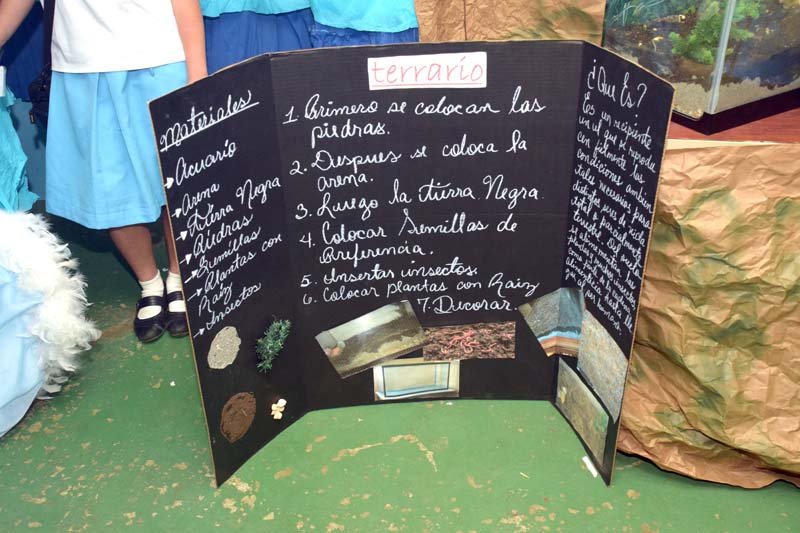 terrario
Materiales
→ Acuario
→ Arena
→ tierra Negra
→ Piedras
→ Semillas
→ Plantas con
Raiz
→ Insectos
1. Primero se colocan las
piedras.
2. Despues se coloca la
arena.
3. Luego la tierra Negra.
4. Colocar Semillas de
Preferencia.
5. Insertar insectos.
6. Colocar plantas con Raiz
7. Decorar.
¿Que Es?
Es un recipiente
en el que se reproducen
fielmente las
condiciones ambien
tales necesarias para
distintos seres de vida
total o parcialmente